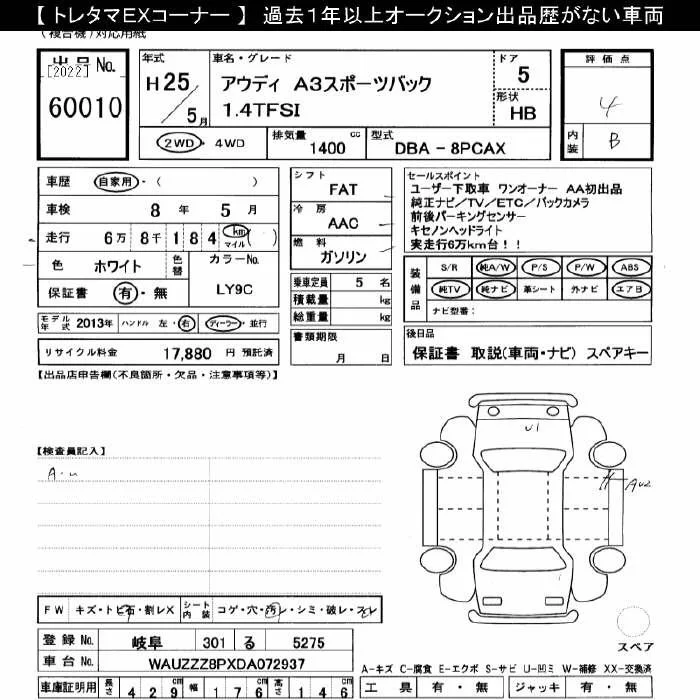 【 トレタマEXコーナー 】 過去１年以上オークション出品歴がない車両
(複合機)対応用紙
出品No.
[2022]
60010
年式
H25
5月
車名・グレード
アウディ A3スポーツバック
1.4TFSI
ドア
5
形状
HB
2WD・4WD
排気量
1400 cc
型式
DBA - 8PCAX
評価点
4
内装
B
車歴 自家用・( )
車検 8年 5月
走行 6万 8千 1 8 4 km マイル ( )
色 ホワイト
色替
カラーNo.
LY9C
保証書 有・無
シフト
FAT
冷房
AAC
燃料
ガソリン
乗車定員 5 名
積載量 kg
総重量 kg
書類期限
月 日
セールスポイント
ユーザー下取車 ワンオーナー AA初出品
純正ナビ/TV/ETC/バックカメラ
前後パーキングセンサー
キセノンヘッドライト
実走行6万km台！！
装備品
S/R 純A/W P/S P/W ABS
純TV 純ナビ 革シート 外ナビ エアB
ナビ型番：
モデル年式 2013年 ハンドル 左・右 ディーラー・並行
リサイクル料金 17,880 円 預託済
後日品
保証書 取説(車両・ナビ) スペアキー
【出品店申告欄(不良箇所・欠品・注意事項等)】
【検査員記入】
A・u
U1
AU2
FW キズ・トビ石・割レX
シート内装 コゲ・穴・汚レ・シミ・破レ・スレ
登録No. 岐阜 301 る 5275
車台No. WAUZZZ8PXDA072937
車庫証明用 長さ 429cm 幅 176cm 高さ 146cm
スペア
A-キズ C-腐食 E-エクボ S-サビ U-凹ミ W-補修 XX-交換済
工具 有・無 ジャッキ 有・無